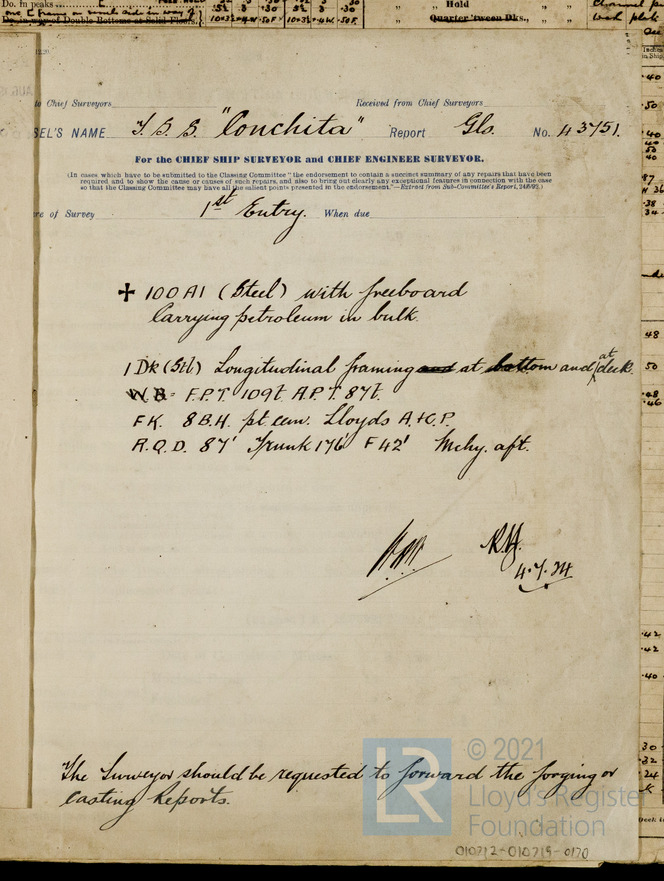 Do. in peaks
Hold
Do. in way of Double Bottoms at Solid Floors.
Quarter 'tween Dks.,
to Chief Surveyors
Received from Chief Surveyors
SEL'S NAME T.S.S "Conchita" Report Gls. No. 43751.
For the CHIEF SHIP SURVEYOR and CHIEF ENGINEER SURVEYOR.
(In cases which have to be submitted to the Classing Committee "the endorsement to contain a succinct summary of any repairs that have been
required and to show the cause or causes of such repairs, and also to bring out clearly any exceptional features in connection with the case
so that the Classing Committee may have all the salient points presented in the endorsement."—Extract from Sub-Committee's Report, 24/6/92.)
re of Survey 1st Entry. When due
✠ 100A1 (Steel) with freeboard
Carrying petroleum in bulk.
1 Dk (Stl) Longitudinal framing and at bottom and at deck.
W.B= F.P.T. 109t. A.P.T. 87t.
FK. 8 B.H. pt cem. Lloyds A.&C.P.
R.Q.D. 87' Trunk 176' F 42' Mchy. aft.
4.7.34
The Surveyor should be requested to forward the forging or
casting Reports.
© 2021
Lloyd's Register
Foundation
010712-010719-0170